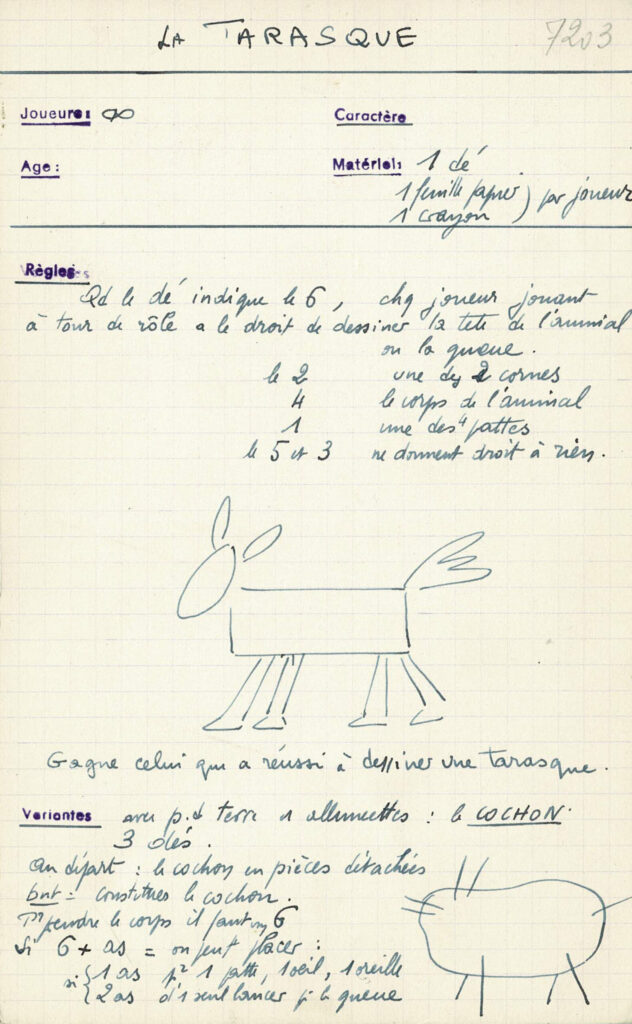 LA TARASQUE
7203
Joueurs: ∞
Caractère
Age:
Matériel: 1 dé
1 feuille papier ) par joueur
1 crayon )
Règles
Qd le dé indique le 6, chq joueur jouant
à tour de rôle a le droit de dessiner la tête de l'animal
ou la queue.
le 2 une des 2 cornes
4 le corps de l'animal
1 une des 4 pattes
le 5 et 3 ne donnent droit à rien.
Gagne celui qui a réussi à dessiner une tarasque.
Variantes avec p. d terre et allumettes : le COCHON.
3 dés.
Au départ : le cochon en pièces détachées
but = constituer le cochon.
prendre le corps il faut un 6
Si 6 + as = on peut placer :
si { 1 as pr 1 patte, 1 oeil, 1 oreille
{ 2 as d'1 seul lancer la queue